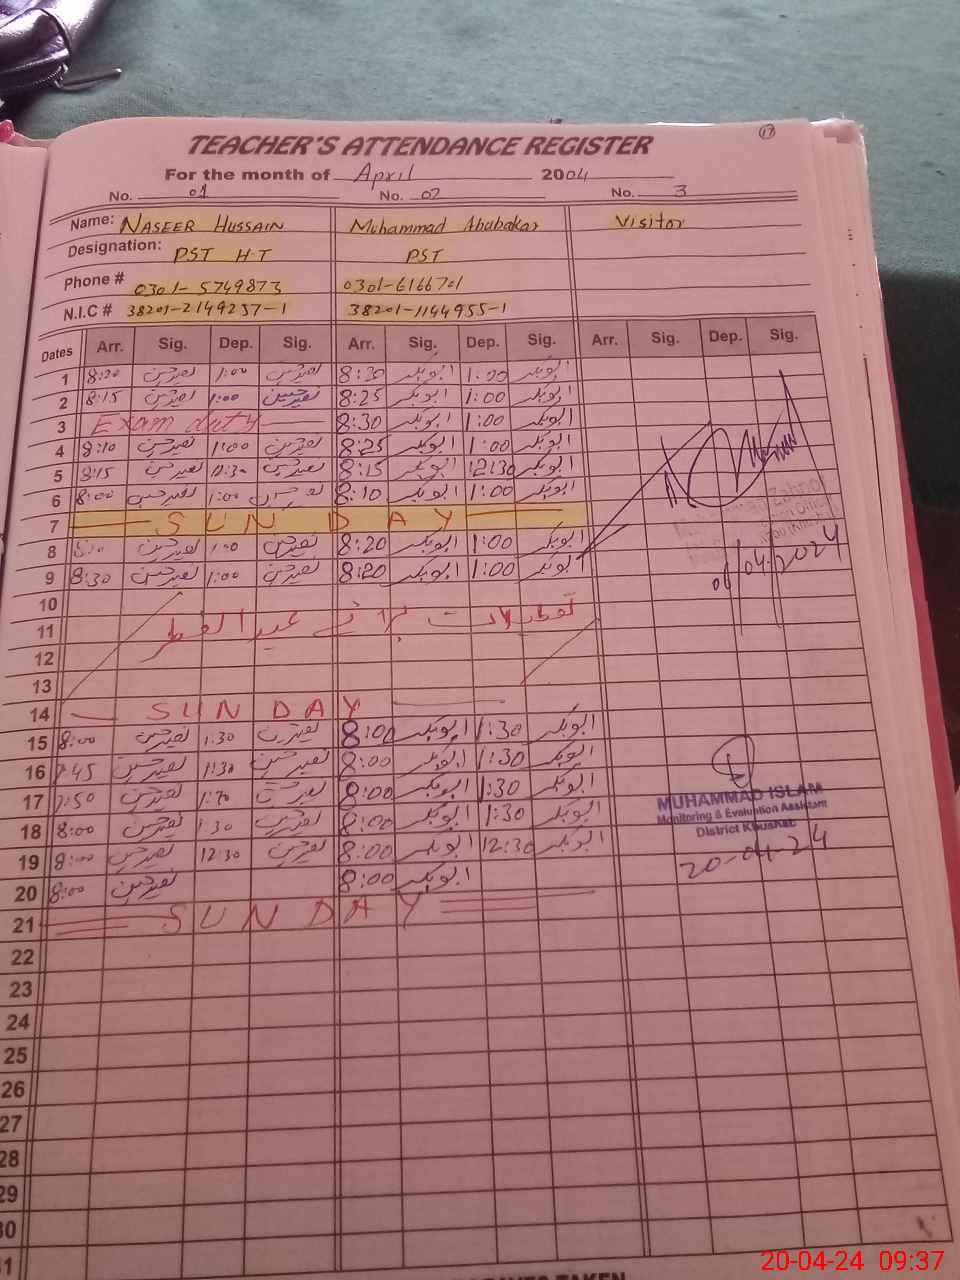 17
TEACHER'S ATTENDANCE REGISTER
For the month of April 2004
No. 01 No. 02 No. 3
Name: NASEER HUSSAIN Muhammad Abubakar Visitor
Designation: PST H.T PST
Phone # 0301-5749873 0301-6166701
N.I.C # 38201-2149257-1 38201-1144955-1
Dates Arr. Sig. Dep. Sig. Arr. Sig. Dep. Sig. Arr. Sig. Dep. Sig.
1 8:20 نصیر حسین 1:00 نصیر حسین 8:30 ابوبکر 1:00 ابوبکر
2 8:15 نصیر حسین 1:00 نصیر حسین 8:25 ابوبکر 1:00 ابوبکر
3 Exam duty 8:30 ابوبکر 1:00 ابوبکر
4 8:10 نصیر حسین 1:00 نصیر حسین 8:25 ابوبکر 1:00 ابوبکر
5 8:15 نصیر حسین 12:30 نصیر حسین 8:15 ابوبکر 12:30 ابوبکر
6 8:00 نصیر حسین 1:00 نصیر حسین 8:10 ابوبکر 1:00 ابوبکر
7 SUN DAY
8 نصیر حسین 1:00 نصیر حسین 8:20 ابوبکر 1:00 ابوبکر
9 8:30 نصیر حسین 1:00 نصیر حسین 8:20 ابوبکر 1:00 ابوبکر
06/04.2024
10
11 تعطیلات برائے عید الفطر
12
13
14 SUN DAY
15 8:00 نصیر حسین 1:30 نصیر حسین 8:00 ابوبکر 1:30 ابوبکر
16 7:45 نصیر حسین 1:30 نصیر حسین 8:00 ابوبکر 1:30 ابوبکر
17 7:50 نصیر حسین نصیر حسین 8:00 ابوبکر 1:30 ابوبکر
MUHAMMAD ISLAM
Monitoring & Evaluation Assistant
District Khushab
20-04-24
18 8:00 نصیر حسین 1:30 نصیر حسین 8:00 ابوبکر 1:30 ابوبکر
19 8:00 نصیر حسین 12:30 نصیر حسین 8:00 ابوبکر 12:30 ابوبکر
20 8:00 نصیر حسین 8:00 ابوبکر
21 SUN DAY
22
23
24
25
26
27
28
29
30
31
20-04-24 09:37